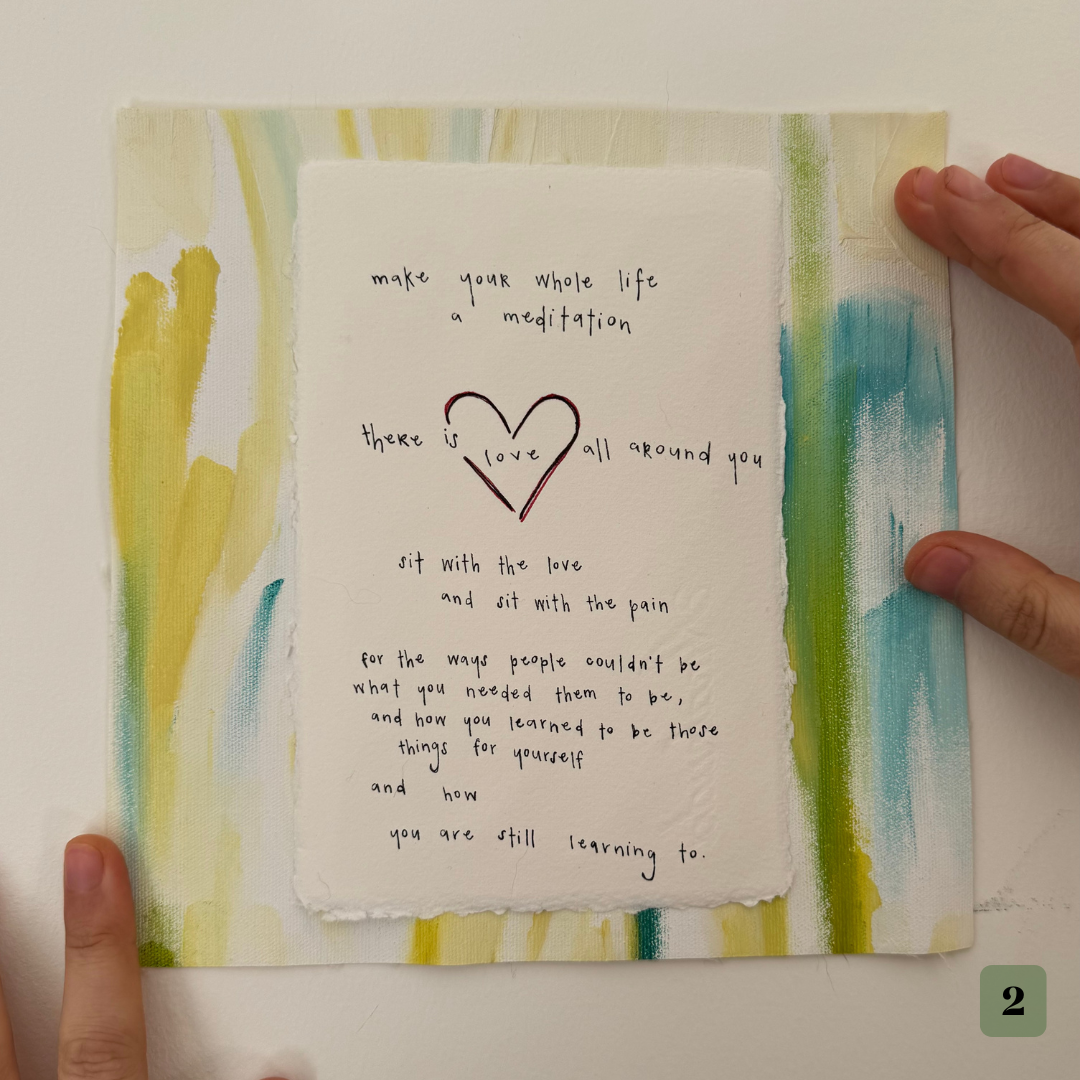 make your whole life
a meditation
there is love all around you
sit with the love
and sit with the pain
for the ways people couldn't be
what you needed them to be,
and how you learned to be those
things for yourself
and how
you are still learning to.
2